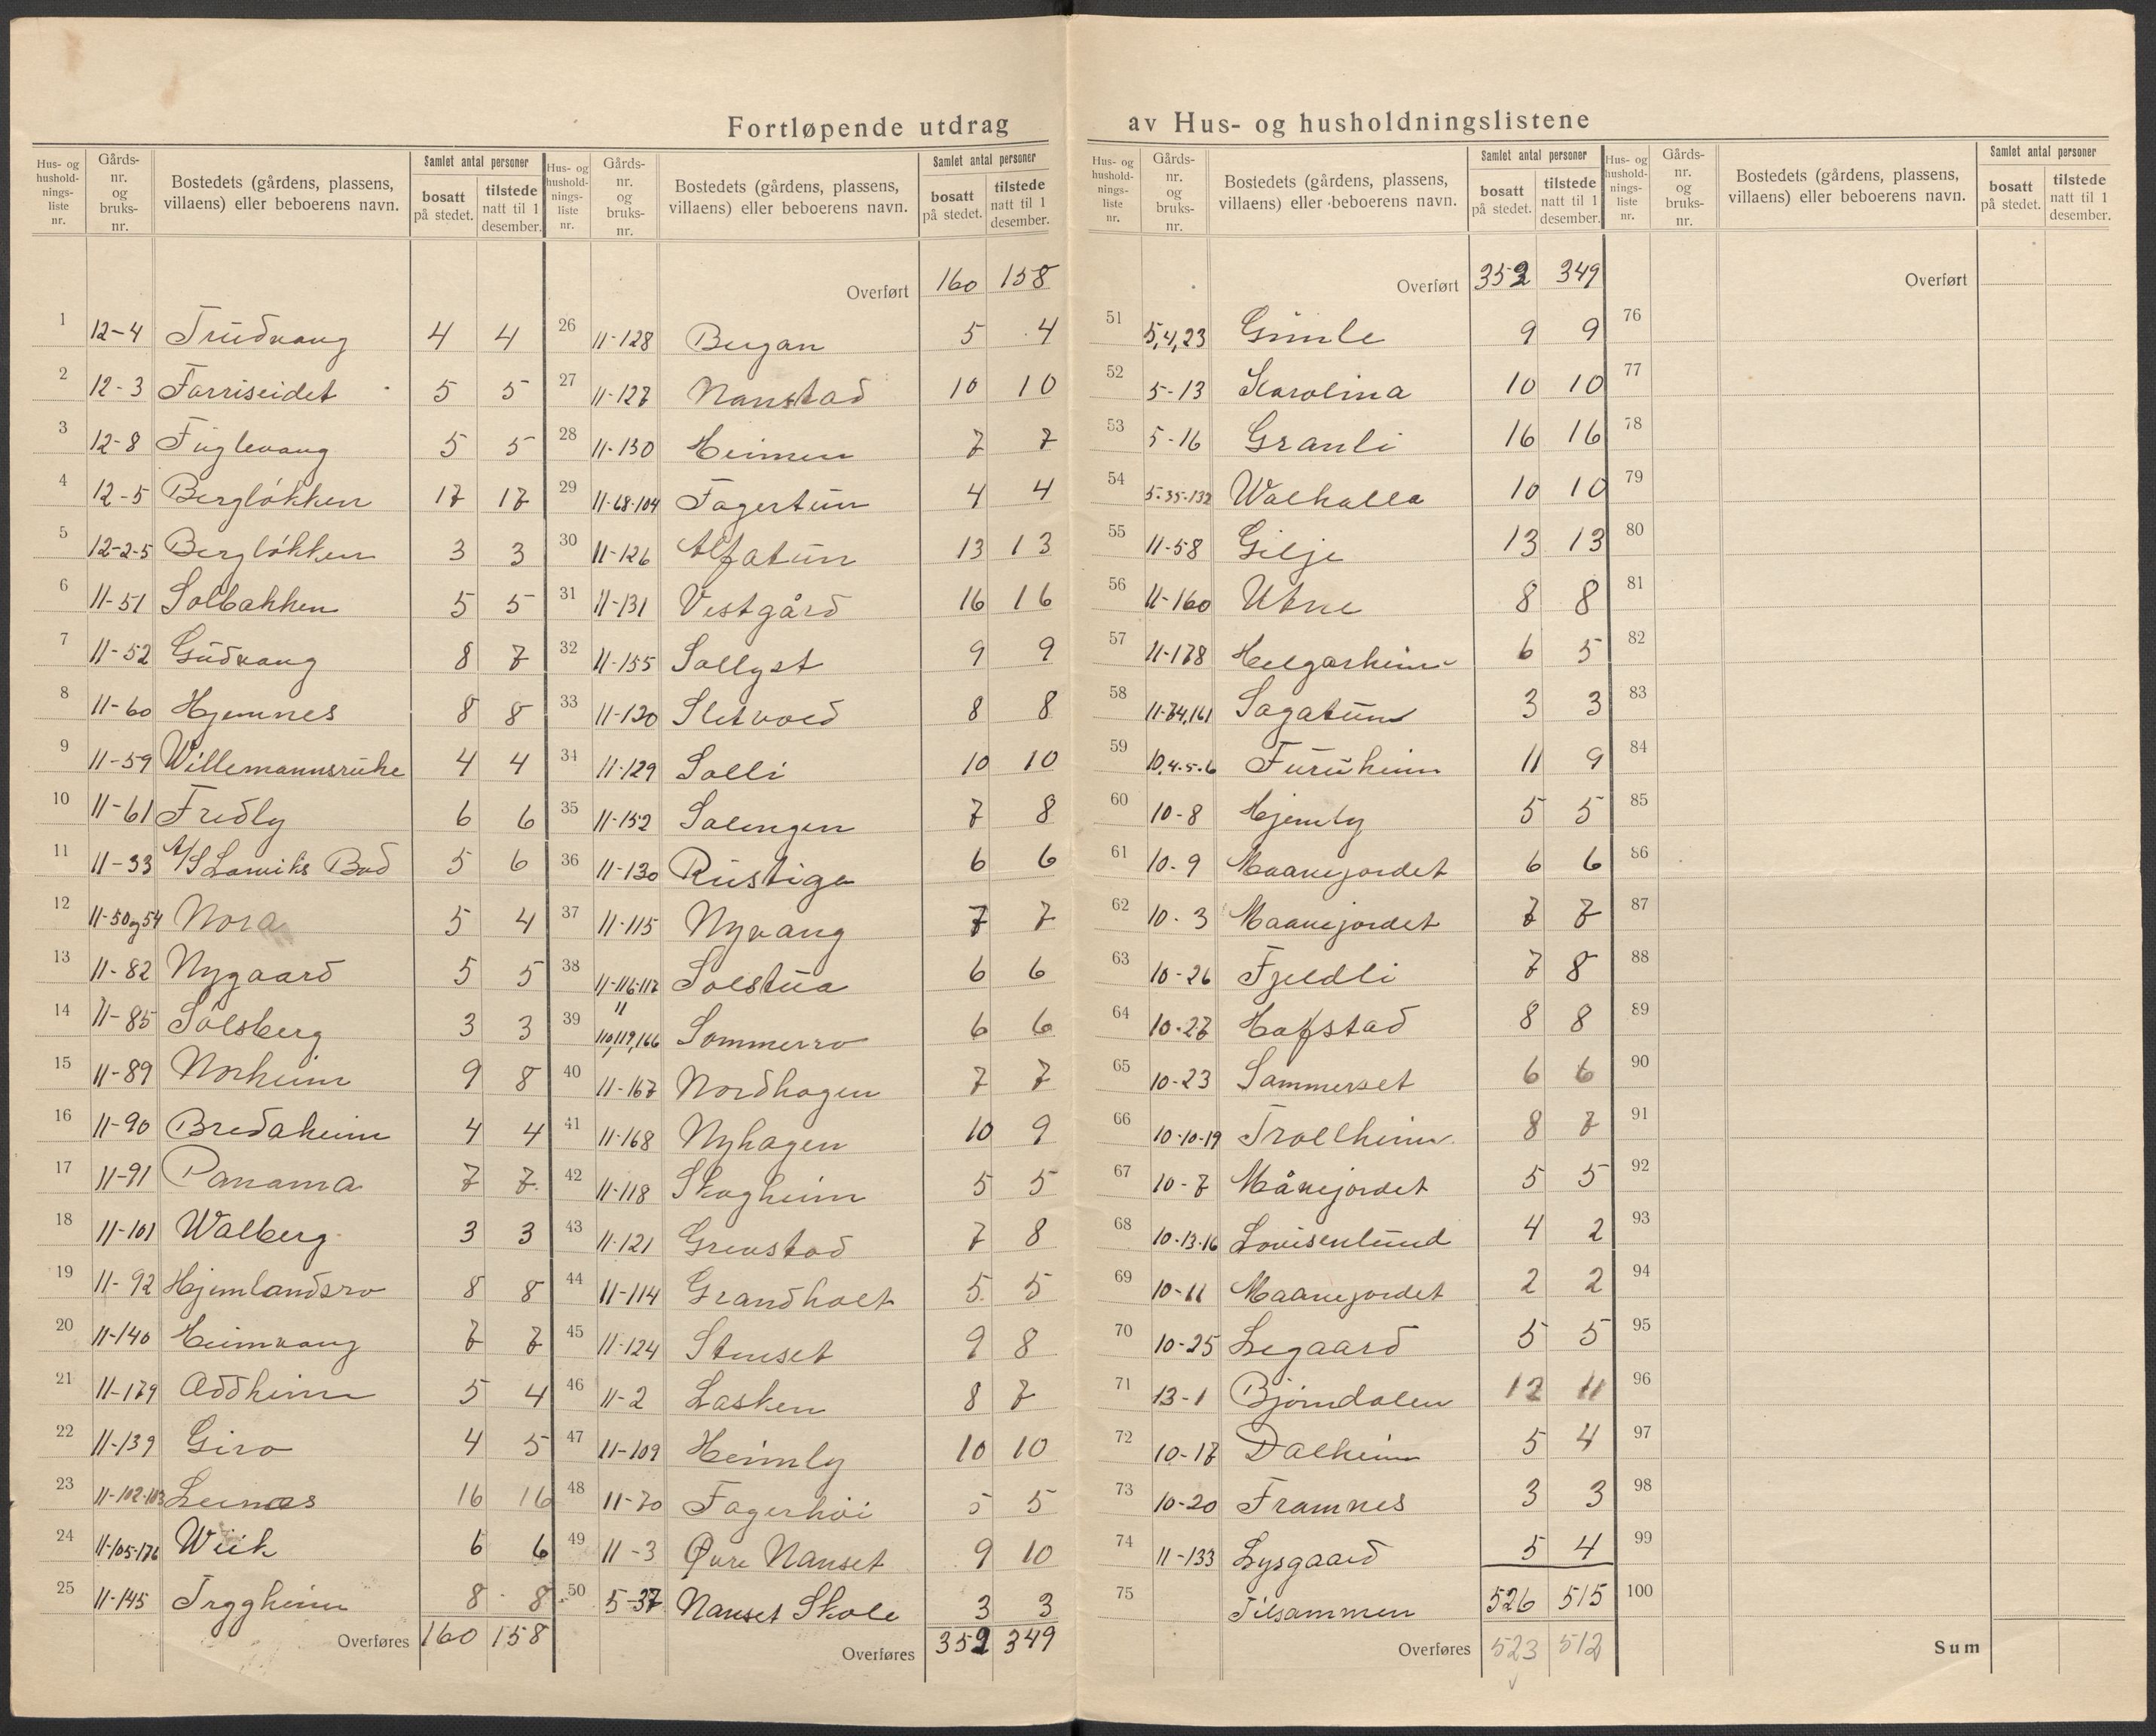 Fortløpende utdrag av Hus- og husholdningslistene
Hus- og hushold-nings-liste nr. Gårds-nr. og bruks-nr. Bostedets (gårdens, plassens, villaens) eller beboerens navn. Samlet antal personer bosatt på stedet. tilstede natt til 1 desember.
1 12-4 Trudvang 4 4
2 12-3 Farriseidet 5 5
3 12-8 Fuglevang 5 5
4 12-5 Bergløkken 17 17
5 12-2-5 Bergløkken 3 3
6 11-51 Solbakken 5 5
7 11-52 Gudvang 8 7
8 11-60 Hjemnes 8 8
9 11-59 Willemannsruhe 4 4
10 11-61 Fredly 6 6
11 11-33 A/S Larviks Bad 5 6
12 11-50og54 Nora 5 4
13 11-82 Nygaard 5 5
14 11-85 Solsberg 3 3
15 11-89 Norheim 9 8
16 11-90 Bredaheim 4 4
17 11-91 Panama 7 7
18 11-101 Walberg 3 3
19 11-92 Hjemlandsro 8 8
20 11-140 Heimvang 7 7
21 11-179 Oddheim 5 4
22 11-139 Giro 4 5
23 11-102-103 Leinæs 16 16
24 11-105-176 Wiik 6 6
25 11-145 Tryggheim 8 8
Overføres 160 158
Hus- og hushold-nings-liste nr. Gårds-nr. og bruks-nr. Bostedets (gårdens, plassens, villaens) eller beboerens navn. Samlet antal personer bosatt på stedet. tilstede natt til 1 desember.
Overført 160 158
26 11-128 Bergan 5 4
27 11-127 Nanstad 10 10
28 11-130 Heimen 7 7
29 11-68-104 Fagertun 4 4
30 11-126 Alfatun 13 13
31 11-131 Vestgård 16 16
32 11-155 Sollyst 9 9
33 11-120 Sletvold 8 8
34 11-129 Solli 10 10
35 11-152 Solengen 7 8
36 11-130 Rustiga 6 6
37 11-115 Nyvang 7 7
38 11-116-117 Solstua 6 6
39 11 110,119,166 Sommerro 6 6
40 11-167 Nordhagen 7 7
41 11-168 Nyhagen 10 9
42 11-118 Skogheim 5 5
43 11-121 Grenstad 7 8
44 11-114 Grandholt 5 5
45 11-124 Stenset 9 8
46 11-2 Lasken 8 7
47 11-109 Heimly 10 10
48 11-70 Fagerhøi 5 5
49 11-3 Øvre Nanset 9 10
50 5-37 Nanset Skole 3 3
Overføres 352 349
Hus- og hushold-nings-liste nr. Gårds-nr. og bruks-nr. Bostedets (gårdens, plassens, villaens) eller beboerens navn. Samlet antal personer bosatt på stedet. tilstede natt til 1 desember.
Overført 352 349
51 5,4,23 Gimle 9 9
52 5-13 Karolina 10 10
53 5-16 Granli 16 16
54 5-35-132 Walhalla 10 10
55 11-58 Gilje 13 13
56 11-160 Utne 8 8
57 11-178 Helgarheim 6 5
58 11-74,161 Sagatun 3 3
59 10,4-5-6 Furuheim 11 9
60 10-8 Hjemly 5 5
61 10-9 Maanejordet 6 6
62 10-3 Maanejordet 7 7
63 10-26 Fjeldli 7 8
64 10-27 Hafstad 8 8
65 10-23 Sommerset 6 6
66 10-10-19 Trollheim 8 7
67 10-7 Månejordet 5 5
68 10-13-16 Louisenlund 4 2
69 10-11 Maanejordet 2 2
70 10-25 Legaard 5 5
71 13-1 Bjørndalen 12 11
72 10-17 Dalheim 5 4
73 10-20 Framnes 3 3
74 11-133 Lysgaard 5 4
75 Tilsammen 526 515
Overføres 523 512
Hus- og hushold-nings-liste nr. Gårds-nr. og bruks-nr. Bostedets (gårdens, plassens, villaens) eller beboerens navn. Samlet antal personer bosatt på stedet. tilstede natt til 1 desember.
Overført
76
77
78
79
80
81
82
83
84
85
86
87
88
89
90
91
92
93
94
95
96
97
98
99
100
Sum